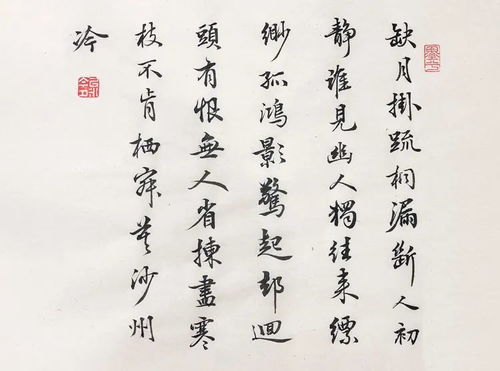 缺月掛疏桐漏斷人初
静誰見幽人獨往来縹
緲孤鴻影驚起却迴
頭有恨無人省揀盡寒
枝不肯栖寂寞沙州
冷